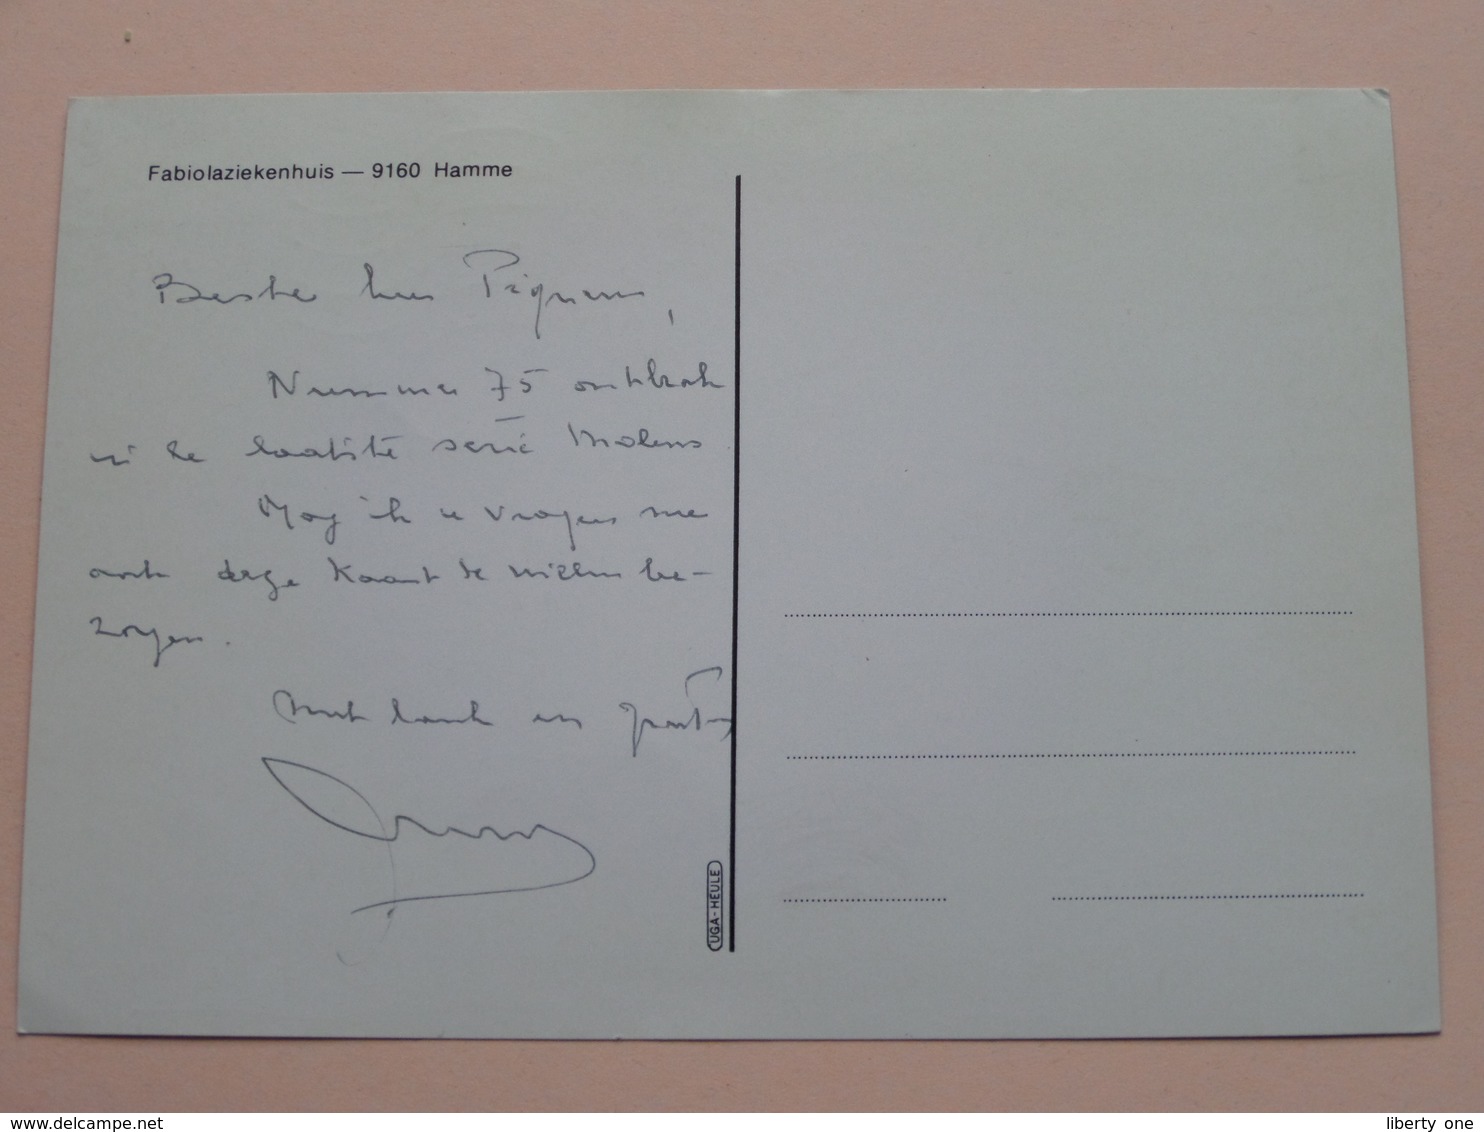 Fabiolaziekenhuis — 9160 Hamme
Beste heer
Nummer 75 ontbrak
in de laatste serie Molens
Mog ik u vragen me
ook deze kaart te willen be-
zorgen.
Met dank en
UGA-HEULE
www.delcampe.net
liberty one